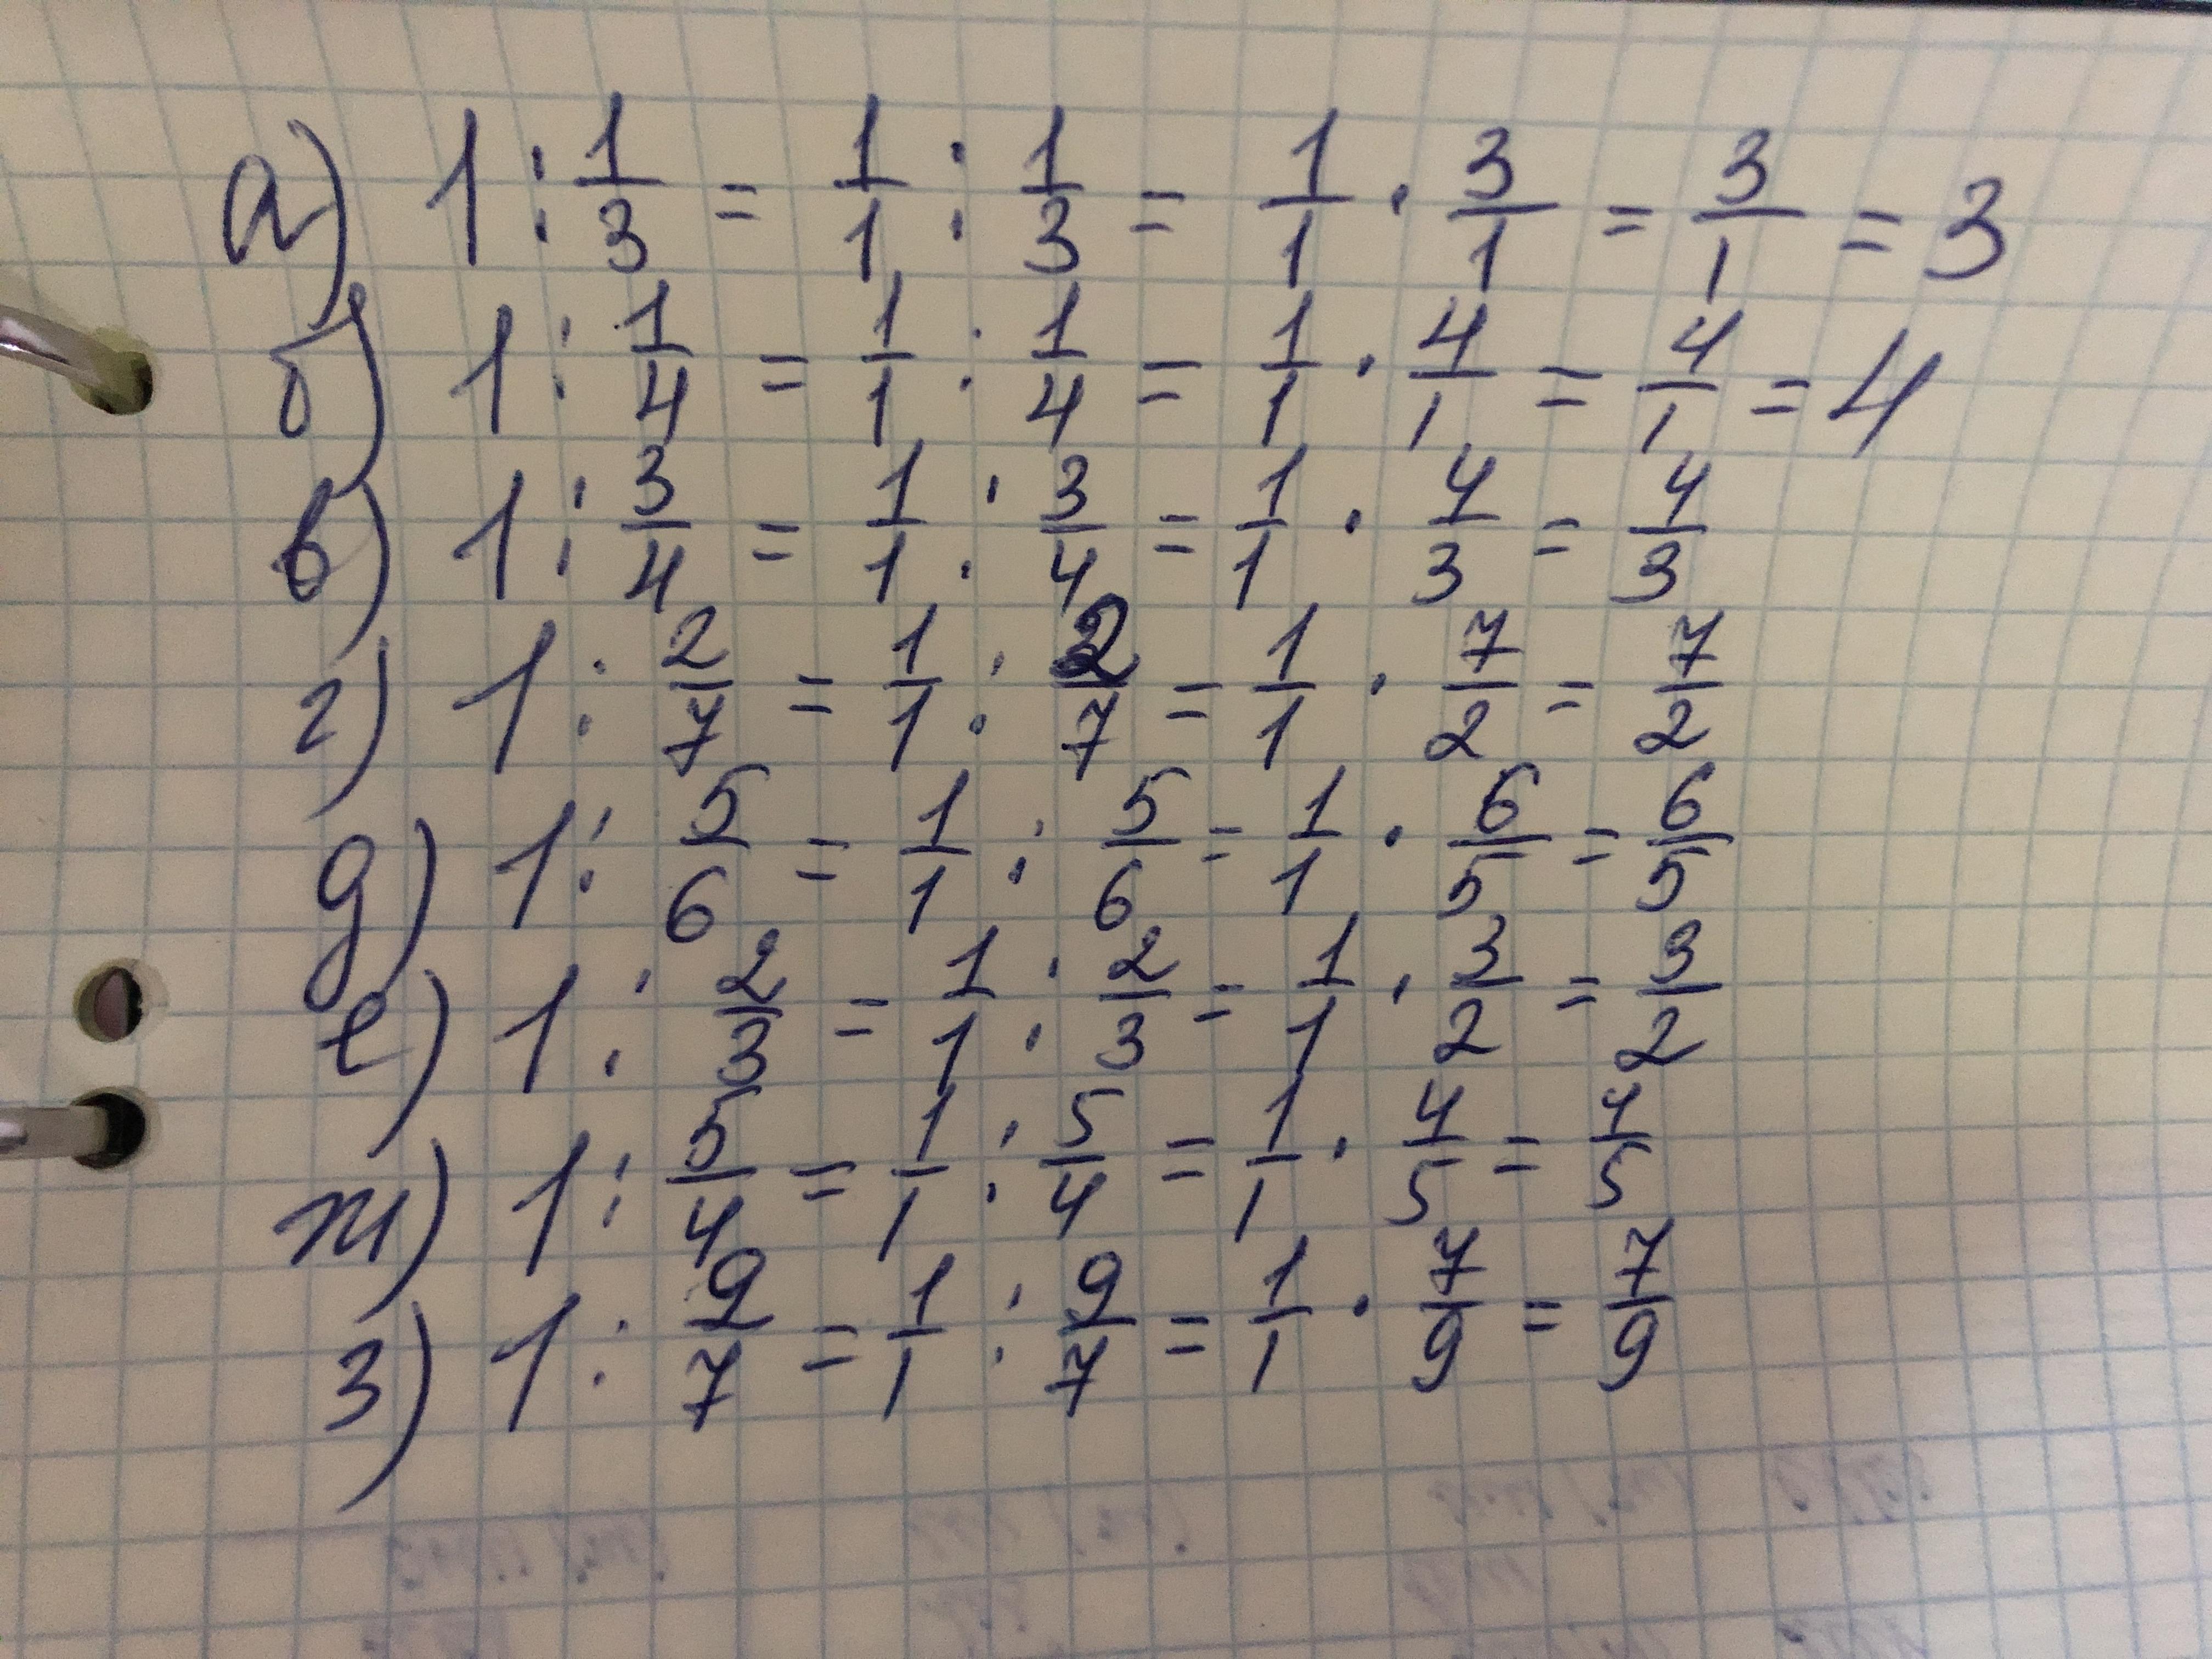 а) 1 : 1/3 = 1/1 : 1/3 = 1/1 · 3/1 = 3/1 = 3
б) 1 : 1/4 = 1/1 : 1/4 = 1/1 · 4/1 = 4/1 = 4
в) 1 : 3/4 = 1/1 : 3/4 = 1/1 · 4/3 = 4/3
г) 1 : 2/7 = 1/1 : 2/7 = 1/1 · 7/2 = 7/2
д) 1 : 5/6 = 1/1 : 5/6 = 1/1 · 6/5 = 6/5
е) 1 : 2/3 = 1/1 : 2/3 = 1/1 · 3/2 = 3/2
ж) 1 : 5/4 = 1/1 : 5/4 = 1/1 · 4/5 = 4/5
з) 1 : 9/7 = 1/1 : 9/7 = 1/1 · 7/9 = 7/9